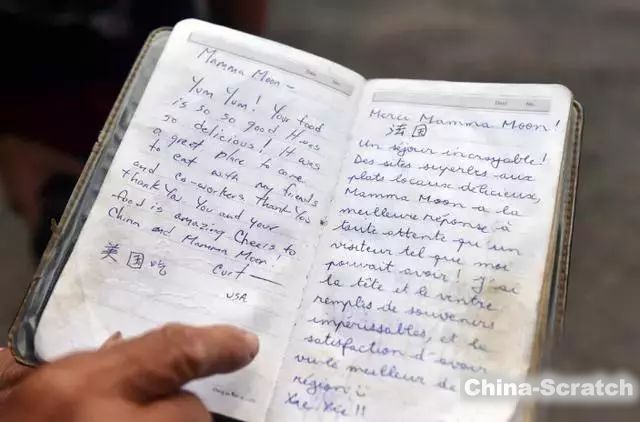 Date: No.
Mamma Moon -
Yum Yum! Your food
is so so good It was
so delicious! It was
a great place to come
to eat with my friends
and co-workers Thank You
thank You. You and your
food is amazing Cheers to
China and Mamma Moon!
美国吃 Curt
USA
Date No.
Merci Mamma Moon!
法国
Un séjour incroyable!
Des sites superbes aux
plats locaux délicieux,
Mamma Moon a la
meilleure réponse à
toute attente qu'un
visiteur tel que moi
pouvait avoir! J'ai
la tête et le ventre
remplis de souvenirs
impérissables, et la
satisfaction d'avoir
vu le meilleur de la
région
Xie Xie!!
China-Scratch